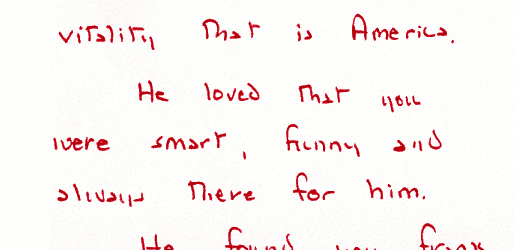 vitality That is America.
He loved That you
were smart, funny and
always There for him.
He found you